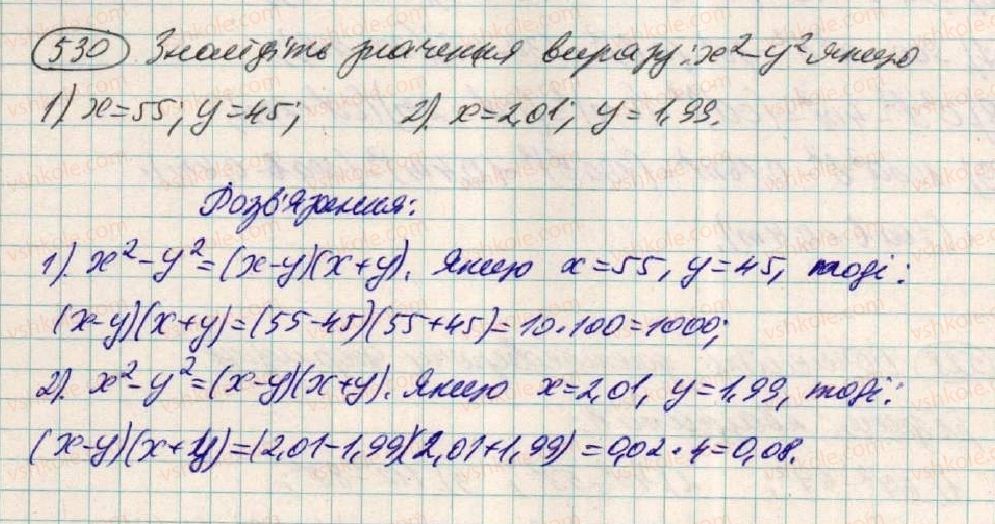 530 Знайдіть значення виразу: x² - y² якщо
1) x = 55; y = 45; 2). x = 2,01; y = 1,99.
Розв'язання:
1). x² - y² = (x-y)(x+y). Якщо x = 55, y = 45, тоді:
(x-y)(x+y) = (55-45)(55+45) = 10·100 = 1000;
2). x² - y² = (x-y)(x+y). Якщо x = 2,01, y = 1,99, тоді:
(x-y)(x+y) = (2,01-1,99)(2,01+1,99) = 0,02·4 = 0,08.